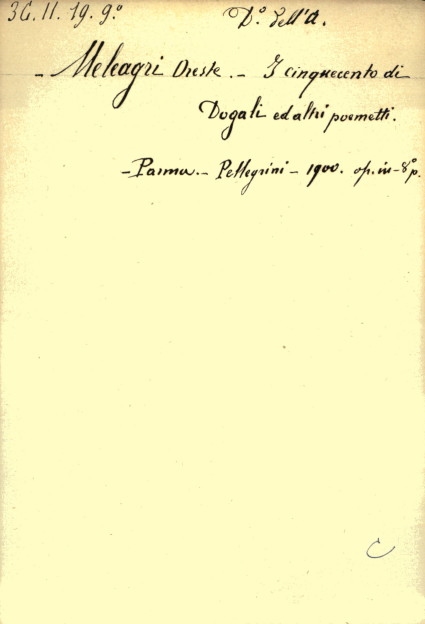 36.II.19.9º Dº. dell'A.
- Meleagri Oreste. - I cinquecento di
Dogali ed altri poemetti.
- Parma. - Pellegrini - 1900. op. in-8º p.
C